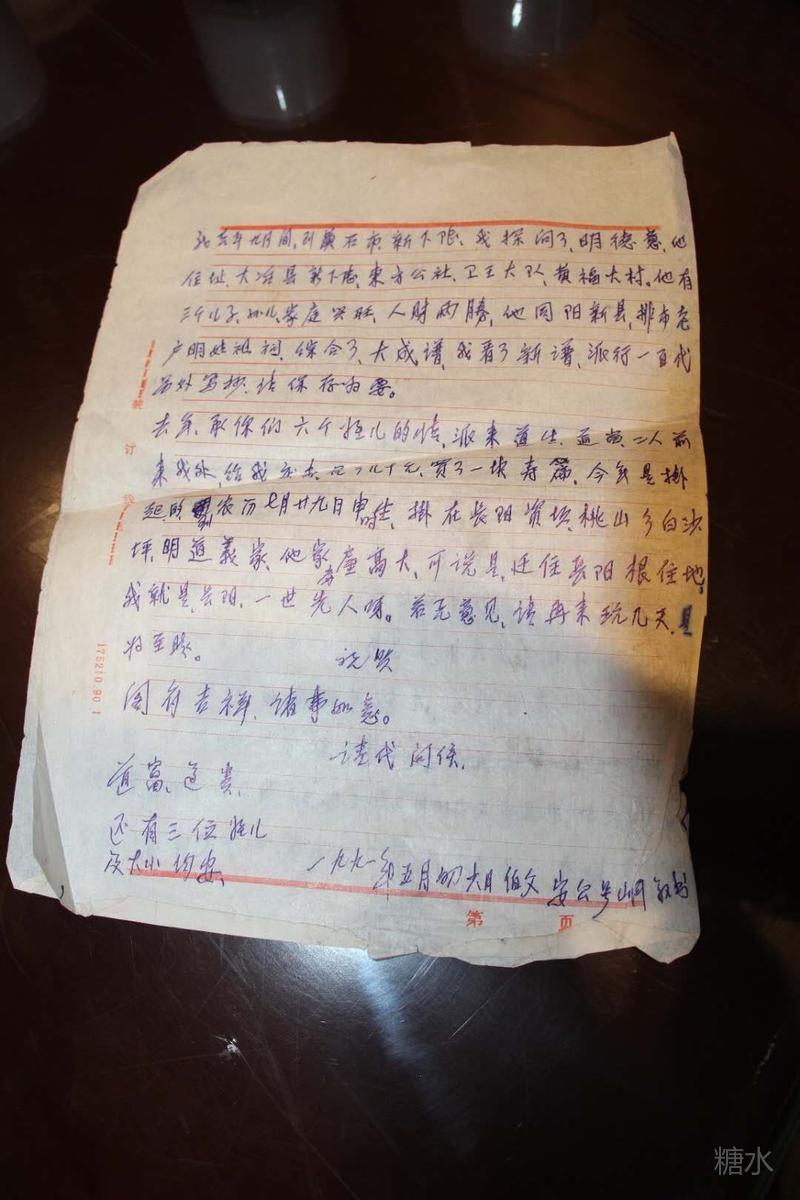 我去年九月间,到黄石市,新下陆,我探问了,明德意,他
住址,大冶县新下陆,东方公社,卫王大队,黄福大村。他有
三个儿子,孙儿,家庭兴旺,人财两勝,他同阳新县,排市老
户明姓祖祠,综合了,大成谱,我看了新谱,派行一百代
另外写抄,请保存为要。
去年,承你们六个姪儿的情,派来道生,道 二人前
来我处,给我 十元,買了一块寿匾,今年是掛
起的 农历七月廿九日申时生,掛在长阳资坵,桃山乡白沙
坪,明道義家,他家寿屋高大,可说是,迁住长阳根住地,
我就是,长阳,一世先人呀。若无意见,请再来玩几天,是
为至盼。 祝贺
阖府吉祥,诸事如意。
请代问候,
道富、道貴,
还有三位姪儿
及大小均安、 一九九一年五月初六日伯父
第 页
装
订
线
175210.90.1
糖水